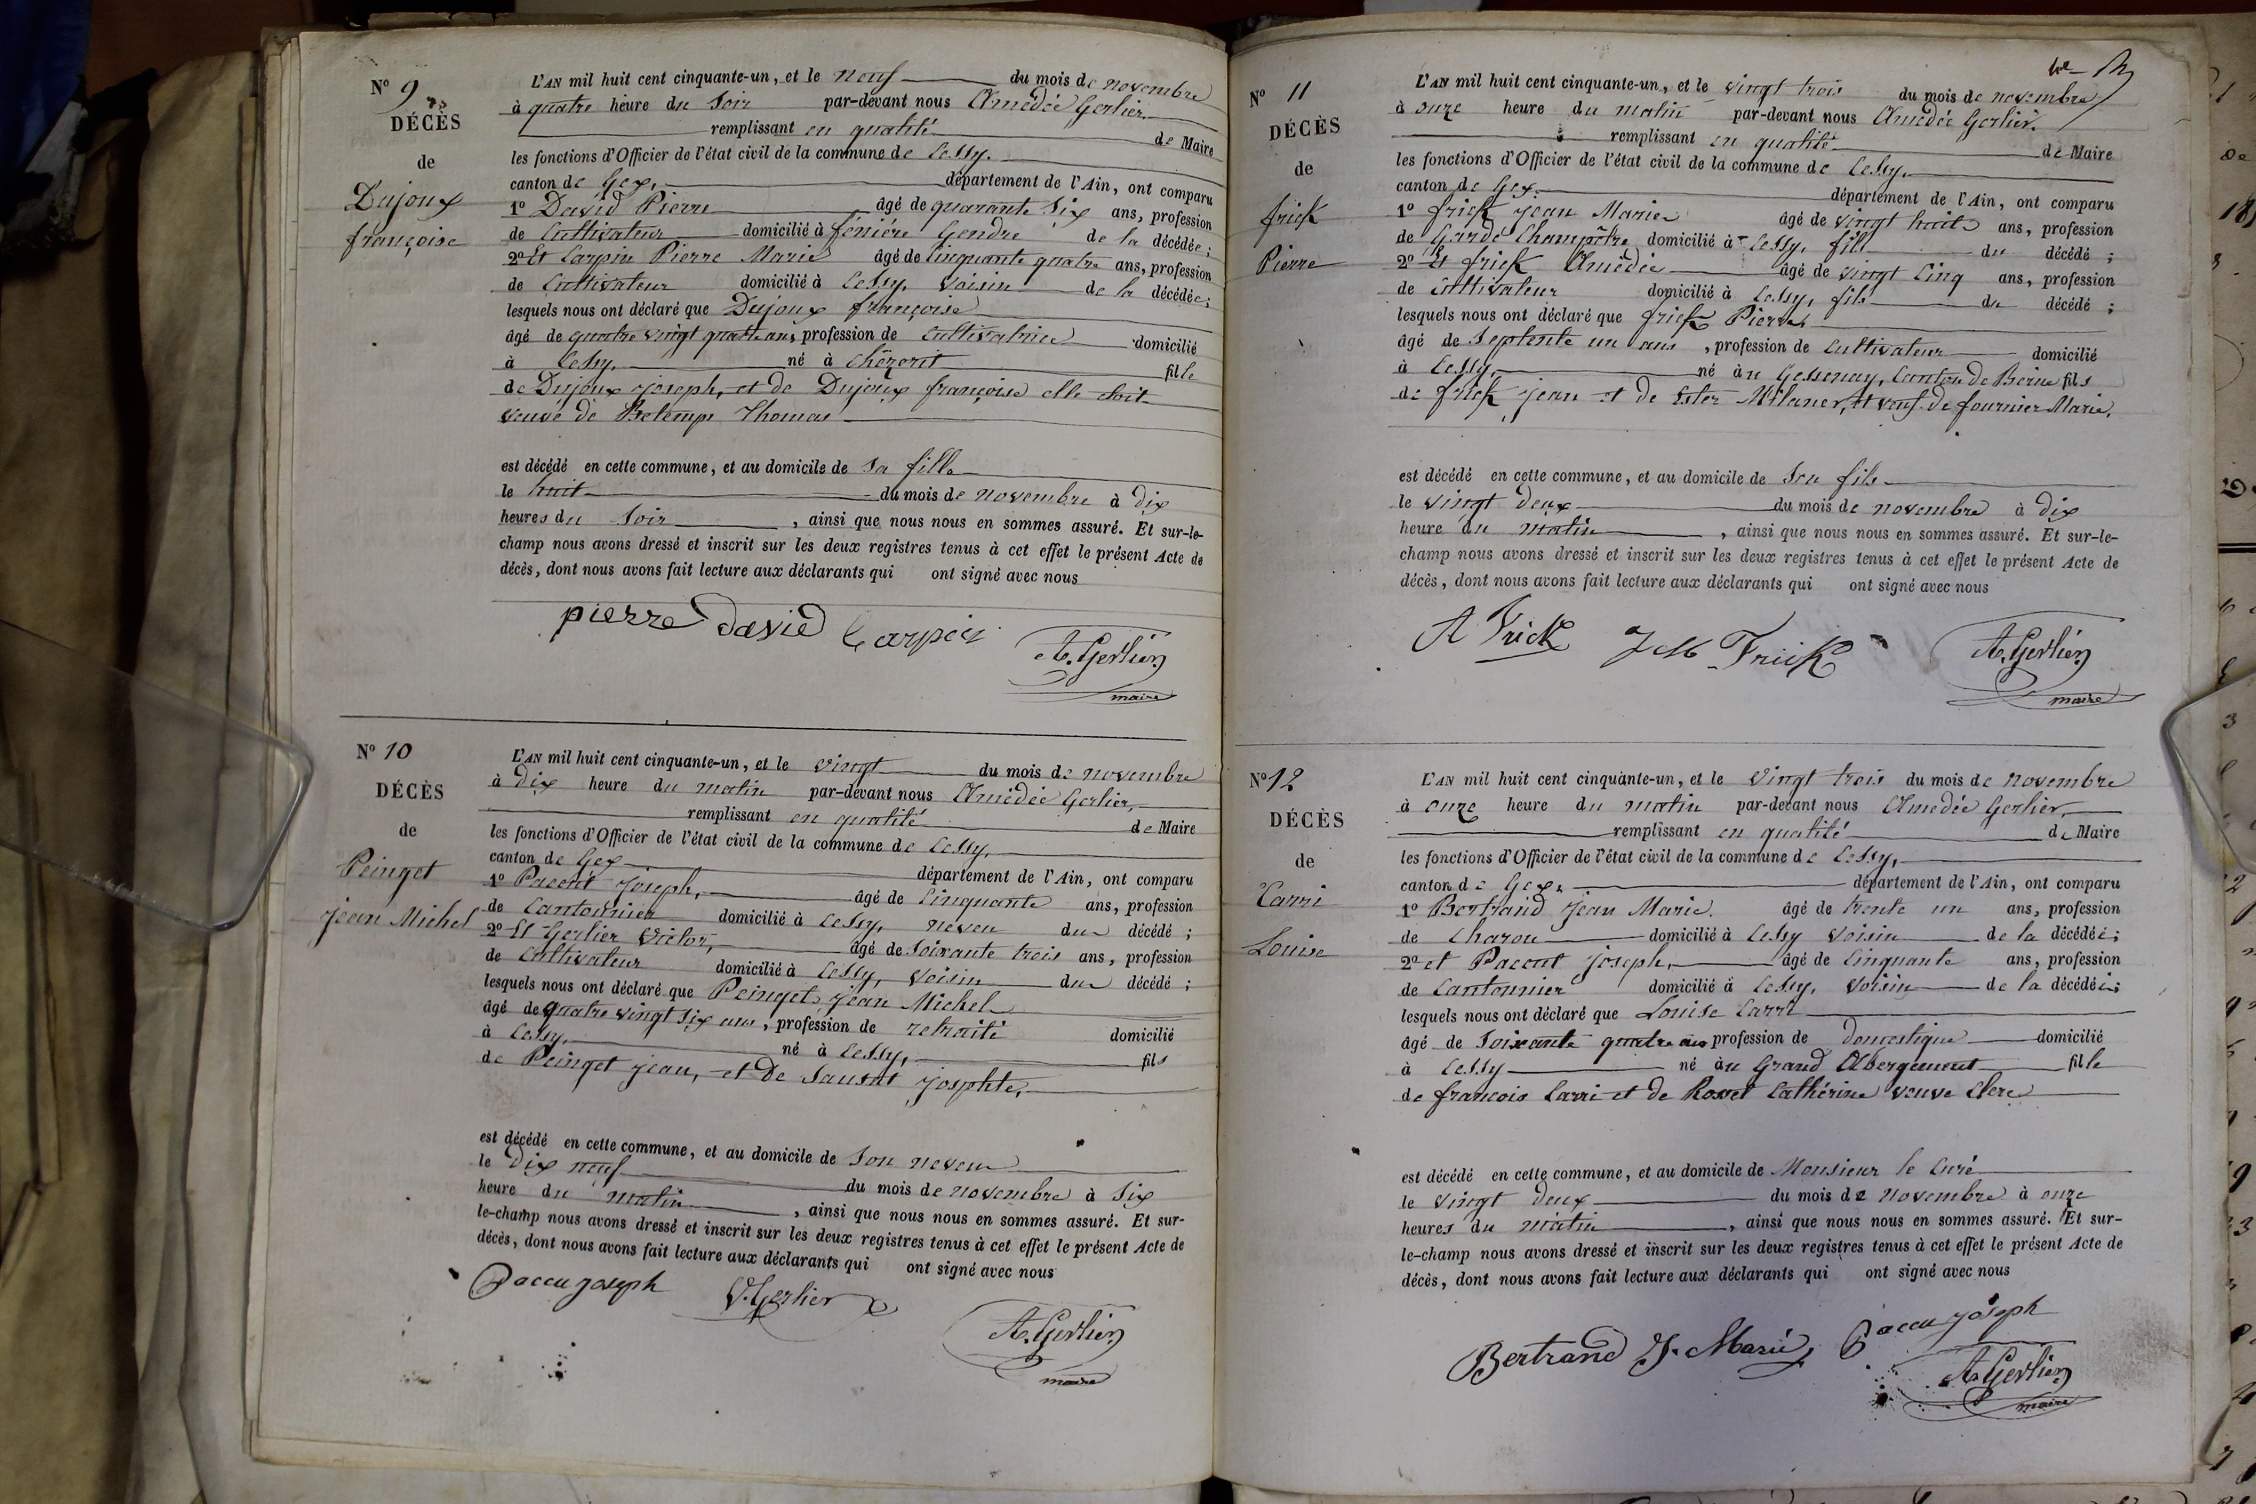 Nº 9
DÉCÈS
de
Dujoux
françoise
L'AN mil huit cent cinquante-un, et le neuf du mois de novembre
à quatre heure du soir par-devant nous Amédée Gerlier
remplissant en qualité de Maire
les fonctions d'Officier de l'état civil de la commune de Cessy.
canton de Gex, département de l'Ain, ont comparu
1º David Pierre âgé de quarante six ans, profession
de Cultivateur domicilié à fénière Gendre de la décédée;
2º Et Carpin Pierre Marie âgé de Cinquante quatre ans, profession
de Cultivateur domicilié à Cessy, voisin de la décédée;
lesquels nous ont déclaré que Dujoux françoise
âgé de quatre vingt quatre ans, profession de Cultivatrice domicilié
à Cessy, né à Chézerit fille
de Dujoux joseph, et de Dujoux françoise elle était
veuve de Betemps Thomas
est décédé en cette commune, et au domicile de sa fille
le huit du mois de novembre à dix
heures du soir, ainsi que nous nous en sommes assuré. Et sur-le-
champ nous avons dressé et inscrit sur les deux registres tenus à cet effet le présent Acte de
décès, dont nous avons fait lecture aux déclarants qui ont signé avec nous
pierre david Carpin
A. Gerlier
maire
Nº 10
DÉCÈS
de
Peinget
jean Michel
L'AN mil huit cent cinquante-un, et le vingt du mois de novembre
à dix heure du matin par-devant nous Amédée Gerlier,
remplissant en qualité de Maire
les fonctions d'Officier de l'état civil de la commune de Cessy,
canton de Gex département de l'Ain, ont comparu
1º Paccut joseph, âgé de Cinquante ans, profession
de Cantonnier domicilié à Cessy, neveu du décédé;
2º Et Gerlier Victor, âgé de Soixante trois ans, profession
de Cultivateur domicilié à Cessy, voisin du décédé;
lesquels nous ont déclaré que Peinget jean Michel
âgé de quatre vingt six ans, profession de retraité domicilié
à Cessy, né à Cessy, fils
de Peinget jean, et de josephte,
est décédé en cette commune, et au domicile de son neveu
le dix neuf du mois de novembre à six
heure du matin, ainsi que nous nous en sommes assuré. Et sur-
le-champ nous avons dressé et inscrit sur les deux registres tenus à cet effet le présent Acte de
décès, dont nous avons fait lecture aux déclarants qui ont signé avec nous
Paccu joseph V. Gerlier
A. Gerlier
maire
Nº 11
DÉCÈS
de
frick
Pierre
L'AN mil huit cent cinquante-un, et le vingt trois du mois de novembre
à onze heure du matin par-devant nous Amédée Gerlier.
remplissant en qualité de Maire
les fonctions d'Officier de l'état civil de la commune de Cessy,
canton de Gex. département de l'Ain, ont comparu
1º frick jean Marie âgé de vingt huit ans, profession
de Garde Champêtre domicilié à Cessy, fils du décédé;
2º Et frick Amédée âgé de vingt Cinq ans, profession
de Cultivateur domicilié à Cessy, fils du décédé;
lesquels nous ont déclaré que frick Pierre,
âgé de Septente un ans, profession de Cultivateur domicilié
à Cessy, né àu Gessenay, Canton de Berne fils
de frick jean et de Ester Milaner, et veuf de fournier Marie.
est décédé en cette commune, et au domicile de son fils
le vingt deux du mois de novembre à dix
heure du matin, ainsi que nous nous en sommes assuré. Et sur-le-
champ nous avons dressé et inscrit sur les deux registres tenus à cet effet le présent Acte de
décès, dont nous avons fait lecture aux déclarants qui ont signé avec nous
A Frick J M Frick
A. Gerlier
maire
Nº 12
DÉCÈS
de
Carri
Louise
L'AN mil huit cent cinquante-un, et le vingt trois du mois de novembre
à onze heure du matin par-devant nous Amedée Gerlier,
remplissant en qualité de Maire
les fonctions d'Officier de l'état civil de la commune de Cessy,
canton de Gex. département de l'Ain, ont comparu
1º Bertrand jean Marie. âgé de trente un ans, profession
de charon domicilié à Cessy voisin de la décédée;
2º et Paccut joseph, âgé de Cinquante ans, profession
de Cantonnier domicilié à Cessy, voisin de la décédée;
lesquels nous ont déclaré que Louise Carri
âgé de Soixante quatre ans profession de domestique domicilié
à Cessy né àu Grand Abergement fille
de francois Carri et de Rosset Cathérine veuve Clerc
est décédé en cette commune, et au domicile de Monsieur le Curé
le vingt deux du mois de novembre à onze
heures du matin, ainsi que nous nous en sommes assuré. Et sur-
le-champ nous avons dressé et inscrit sur les deux registres tenus à cet effet le présent Acte de
décès, dont nous avons fait lecture aux déclarants qui ont signé avec nous
Bertrand J. Marie Paccu joseph
A. Gerlier
maire